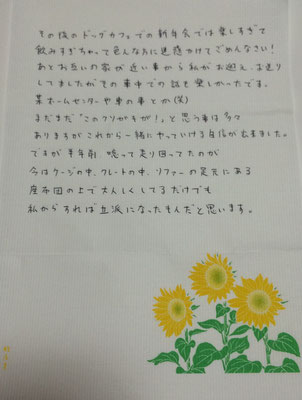 その後のドッグカフェでの新年会では楽しすぎて
飲みすぎちゃって色んな方に迷惑かけてごめんなさい！
あとお互いの家が近い事から私がお迎え、お送り
してましたがその車中での話も楽しかったです。
某ホームセンターや車の事とか(笑)
まだまだ"このクソガキが！"と思う事は多々
ありますがこれから一緒にやっていける自信が出来ました。
ですが半年前、唸って走り回ってたのが
今はケージの中、クレートの中、ソファーの足元にある
座布団の上で大人しくしてるだけでも
私からすれば立派になったもんだと思います。